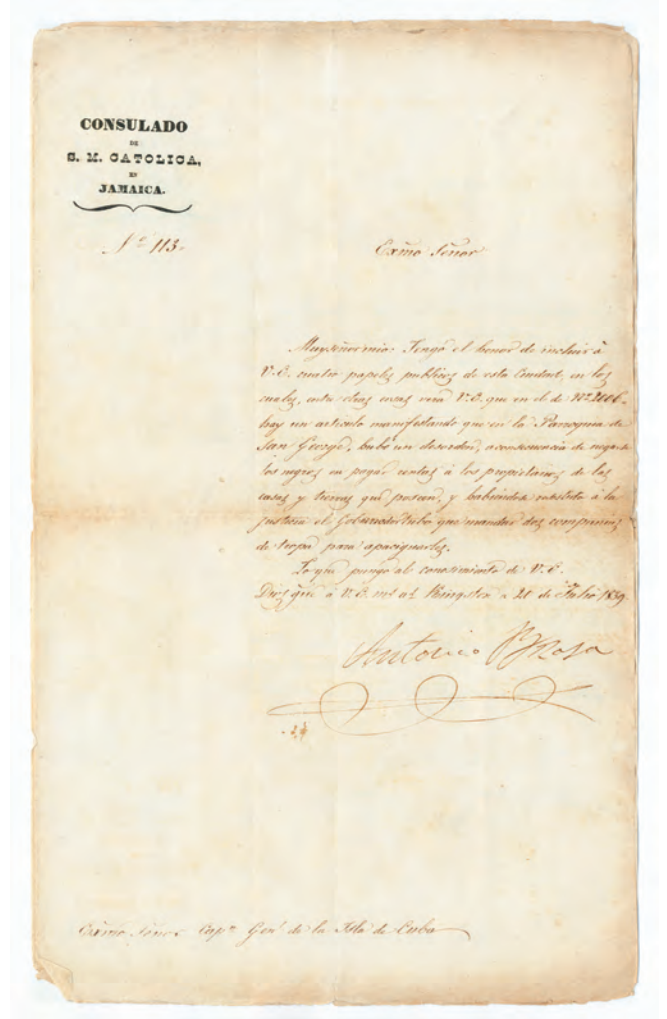 CONSULADO
DE
S. M. CATOLICA,
EN
JAMAICA.
Nº 113.
Exmo Señor
Muy señor mio: Tengo el honor de incluir à
V.E. cuatro papeles publicos de esta Ciudad, en los
cuales, entre otras cosas verá V.E. que en el de Nº 2006
hay un articulo manifestando que en la Parroquia de
San George, hubo un desorden, a consecuencia de negarse
los negros en pagar rentas à los propietarios de las
casas y tierras que poseen, y habiendose resistido à la
justicia el Gobernador tubo que mandar dos compañias
de tropa para apaciguarlos.
Lo que pongo al conocimiento de V.E.
Dios gûe à V.E. ms as Kingston a 21 de Julio 1839
Antonio
Exmo Señor Capn Genl de la Isla de Cuba